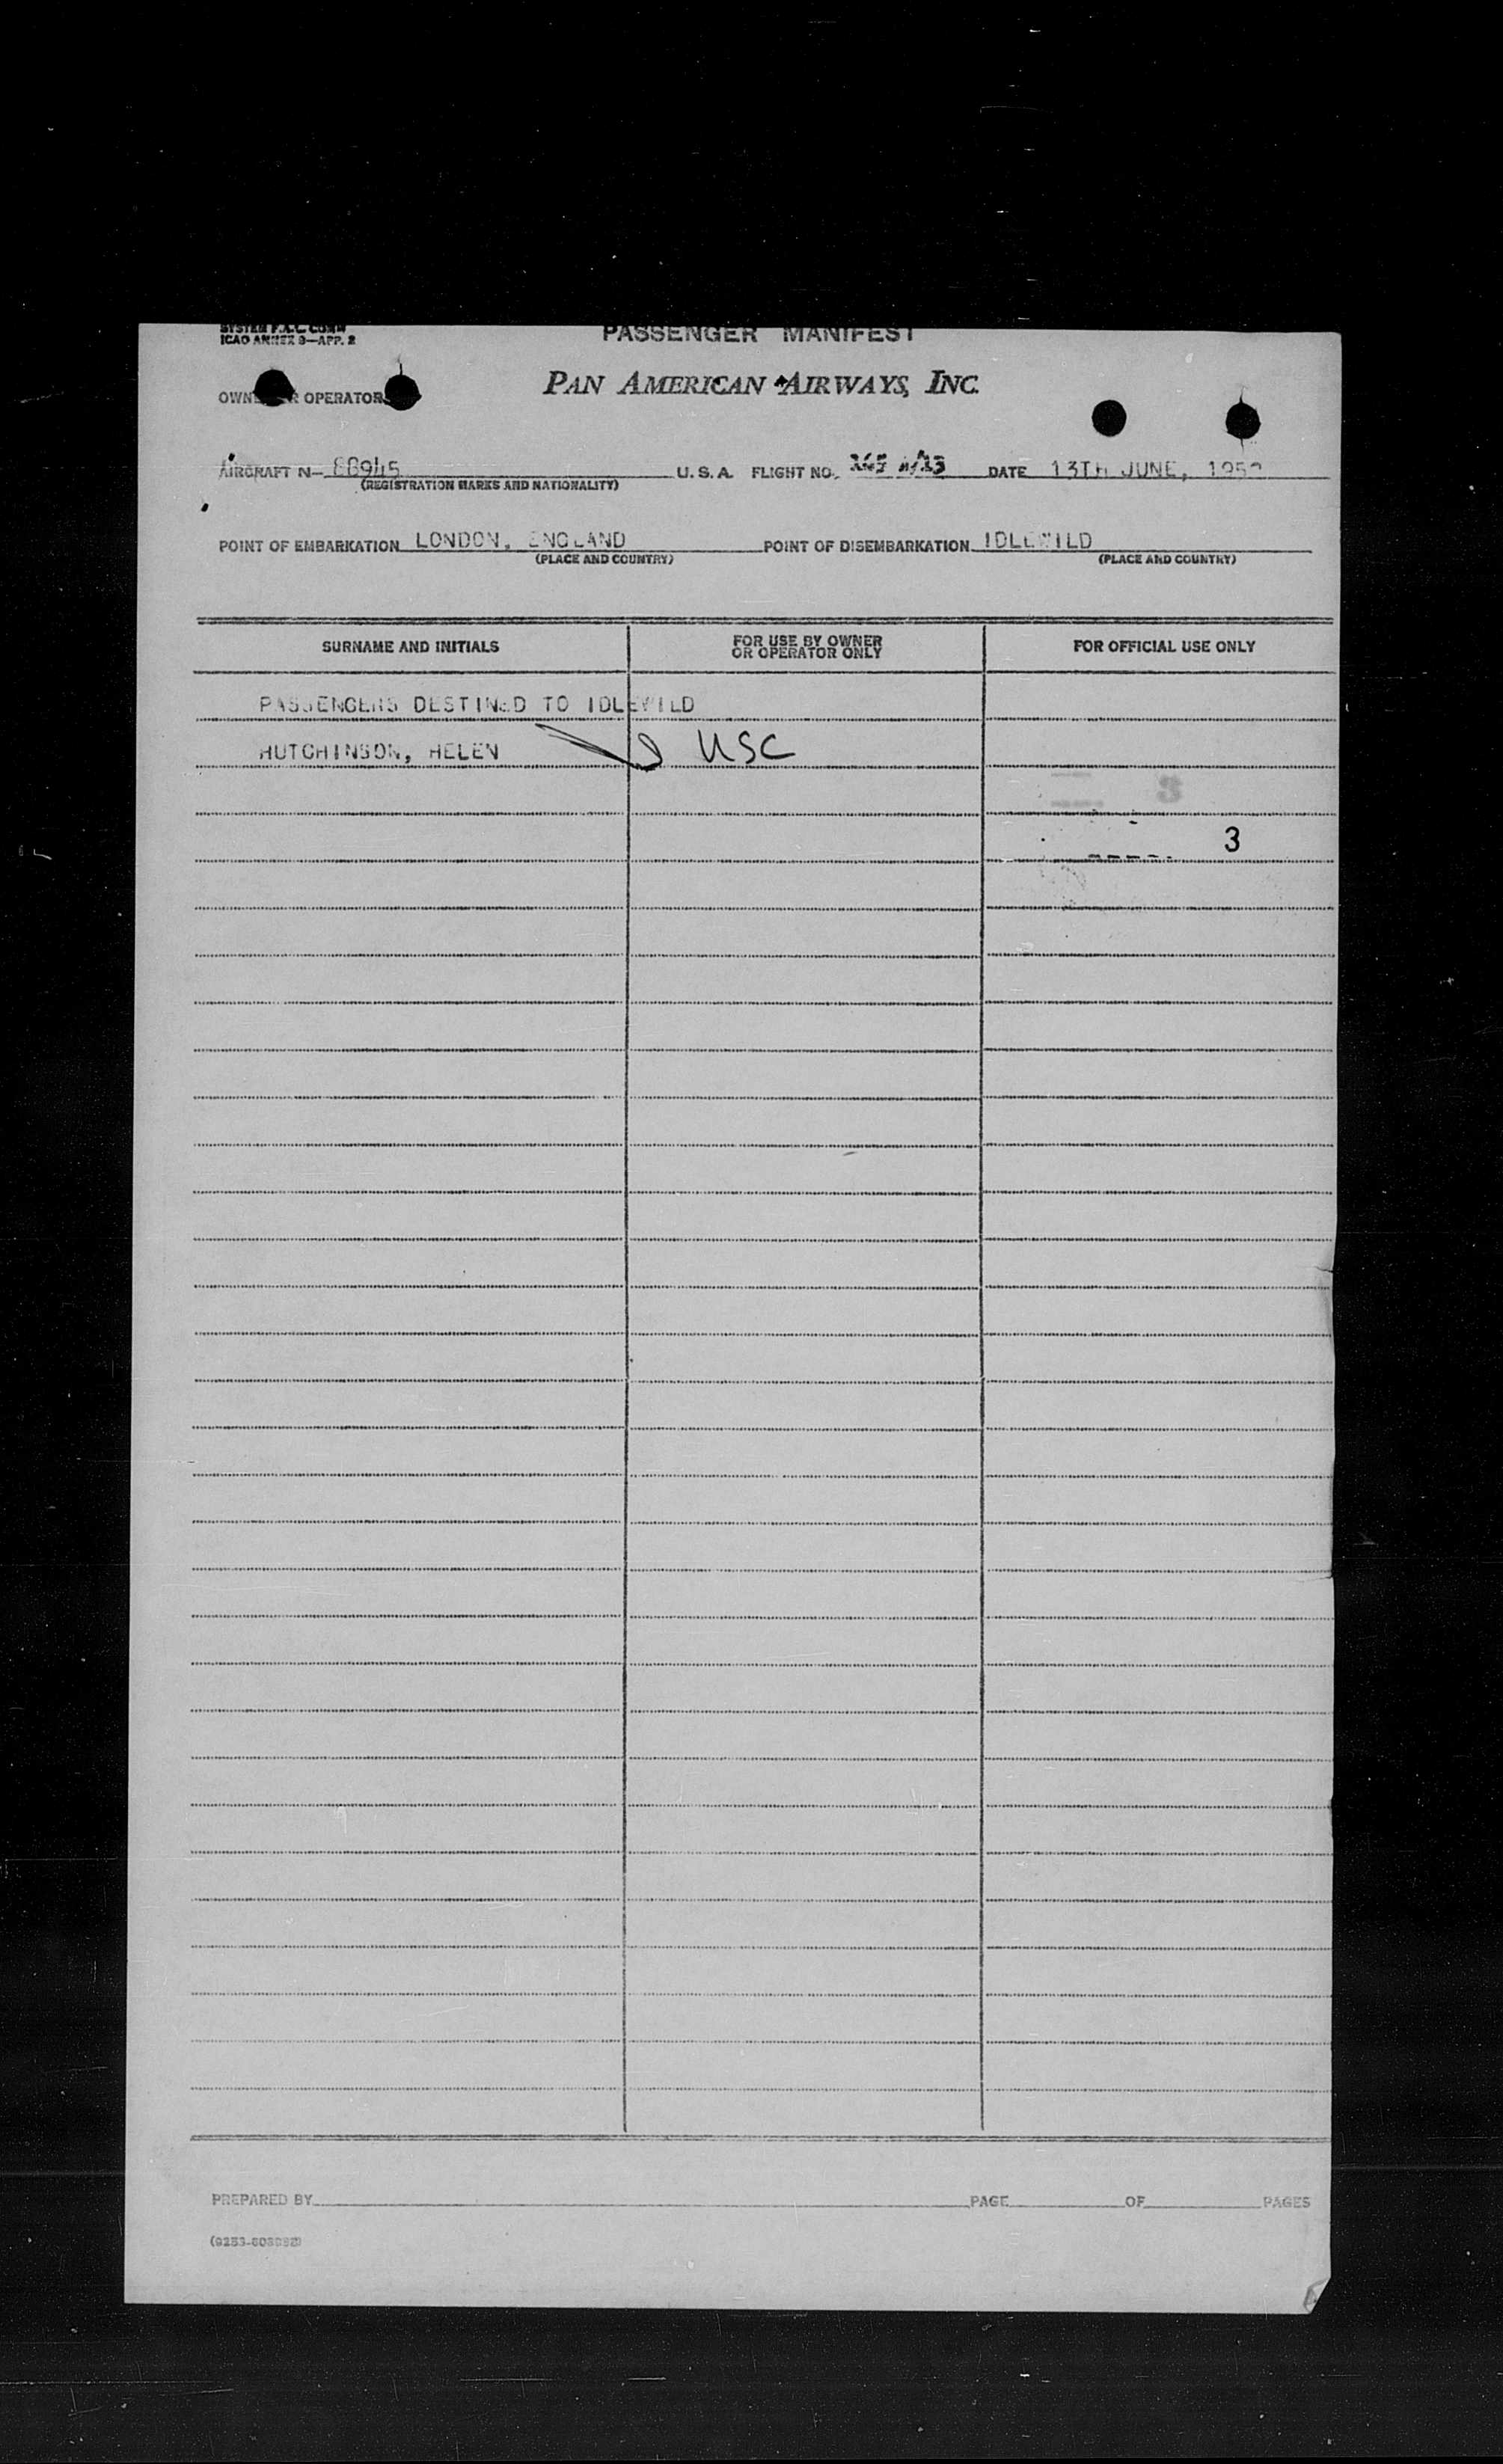 SYSTEM F.A.L. COMM
ICAO ANNEX 9—APP. 2
PASSENGER MANIFEST
PAN AMERICAN AIRWAYS, INC.
OWNER OR OPERATOR
AIRCRAFT N— 88945 U.S.A. FLIGHT NO. DATE 13TH JUNE, 195
(REGISTRATION MARKS AND NATIONALITY)
POINT OF EMBARKATION LONDON, ENGLAND POINT OF DISEMBARKATION IDLEWILD
(PLACE AND COUNTRY) (PLACE AND COUNTRY)
SURNAME AND INITIALS FOR USE BY OWNER OR OPERATOR ONLY FOR OFFICIAL USE ONLY
PASSENGERS DESTINED TO IDLEWILD
HUTCHINSON, HELEN USC
3
3
PREPARED BY PAGE OF PAGES